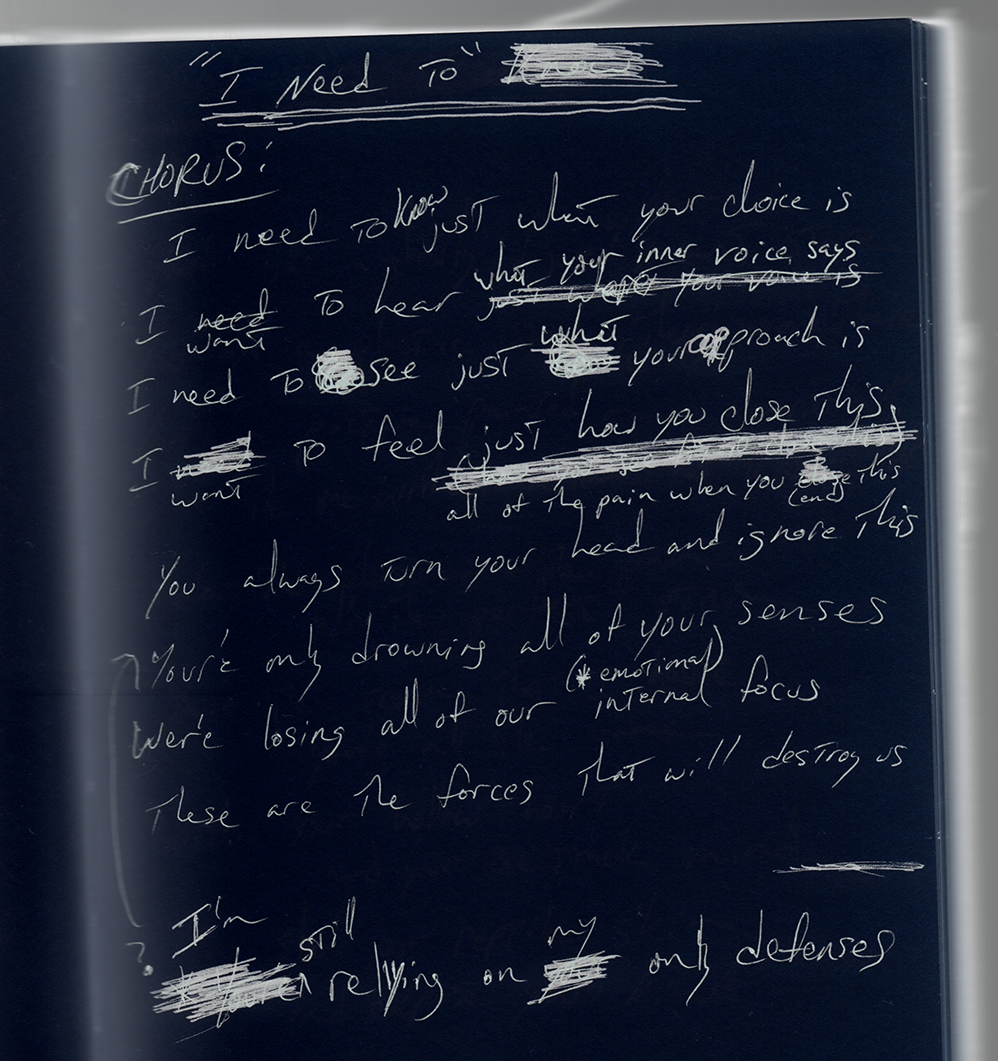 "I Need To"
CHORUS:
I need to know just what your choice is
what your inner voice says
I need to hear just what your voice is
want
what
I need to see just your approach is
I need to feel just how you close this,
want
all of the pain when you close this
(end)
You always turn your head and ignore this
You're only drowning all of your senses
(* emotional)
We're losing all of our internal focus
These are the forces that will destroy us
I'm still my
? relying on only defenses